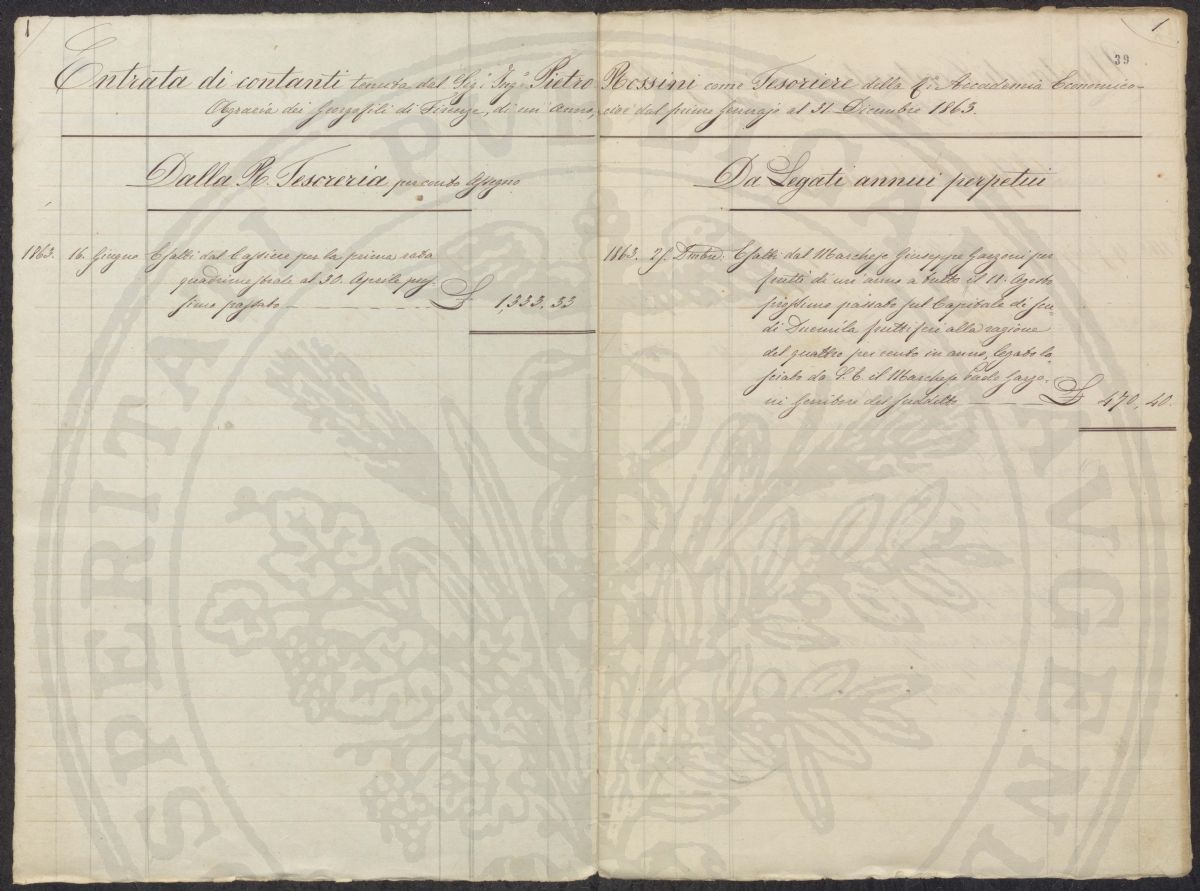 1
1
39
Entrata di contanti tenuta dal Sig.r Ing.re Pietro Rossini come Tesoriere della R. Accademia Economico-
Agraria dei Georgofili di Firenze, di un Anno, cioè dal primo Gennajo al 31 Dicembre 1863.
Dalla R. Tesoreria per conto Assegno
1863. 16. Giugno Esatti dal Cassiere per la prima rata
quadrimestrale al 30. Aprile pros-
simo passato £ 1,333, 33
Da Legati annui perpetui
1863. Dmbre. Esatti dal Marchese Giuseppe Garzoni per
frutti di un anno a tutto il 11. Agosto
prossimo passato sul Capitale di scu-
di Duemila fruttiferi alla ragione
del quattro per cento in anno, legato la-
sciato da S. E. il Marchese Paolo Garzo-
ni Genitore del suddetto £ 470, 40.
PROSPERITATI PUBLICAE AUGENDAE